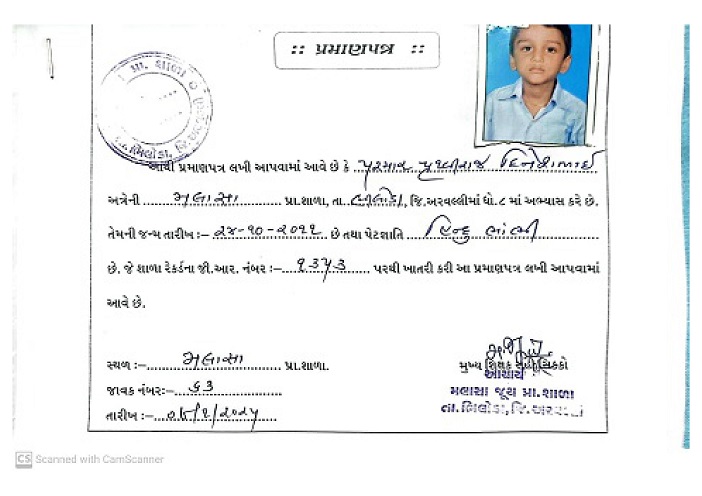 :: પ્રમાણપત્ર ::
પ્રા. શાળા
તા. ભિલોડા, જિ.
આથી પ્રમાણપત્ર લખી આપવામાં આવે છે કે પરમાર પૃથ્વીરાજ દિનેશભાઈ
અત્રેની મલાસા પ્રા.શાળા, તા. ભીલોડા, જિ.અરવલ્લીમાં ધો.૮ માં અભ્યાસ કરે છે.
તેમની જન્મ તારીખ :- ૨૪-૧૦-૨૦૧૧ છે તથા પેટાજ્ઞાતિ હિન્દુ ભાંભી
છે. જે શાળા રેકર્ડના જી.આર. નંબર :- ૧૩૫૩ પરથી ખાતરી કરી આ પ્રમાણપત્ર લખી આપવામાં
આવે છે.
સ્થળ :- મલાસા પ્રા.શાળા.
મુખ્ય શિક્ષક સહી સિક્કો
આચાર્ય
જાવક નંબર:- ૬૩
મલાસા જૂથ પ્રા.શાળા
તારીખ :- ૦૮/૧/૨૦૨૫
તા.ભિલોડા, જિ.અરવલ્લી
CS Scanned with CamScanner